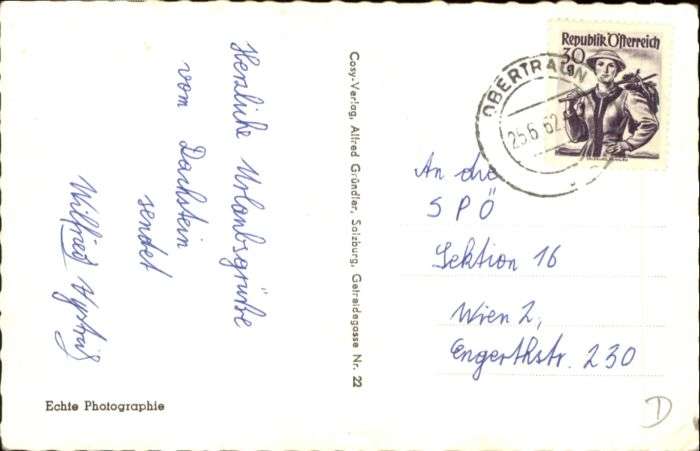 Herzliche Urlaubsgrüße
vom Dachstein
sendet
Wilfried
Cosy-Verlag, Alfred Gründler, Salzburg, Getreidegasse Nr. 22
Republik Österreich
30
g
OBERTRAUN
25.6.62
An die
SPÖ
Sektion 16
Wien 2,
Engerthstr. 230
Echte Photographie
D